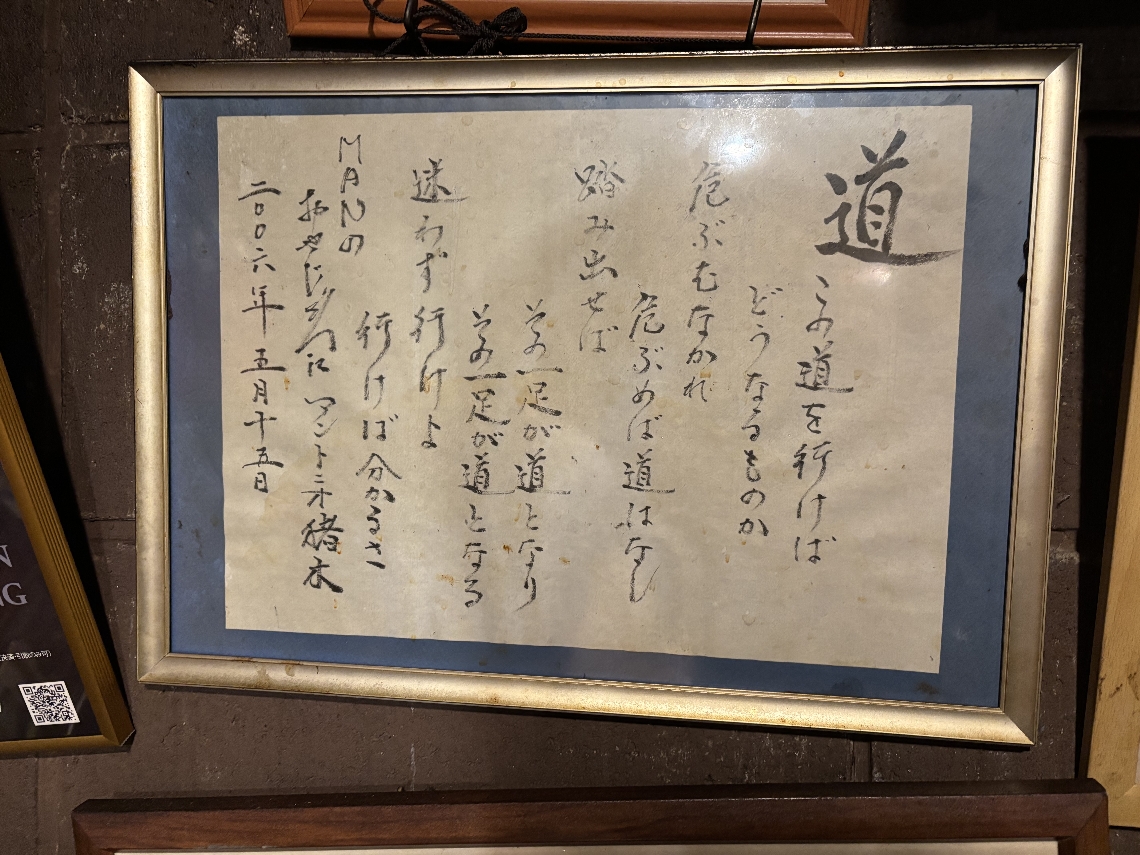 道
この道を行けば
どうなるものか
危ぶむなかれ
危ぶめば道はなし
踏み出せば
その一足が道となり
その一足が道となる
迷わず行けよ
行けば分かるさ
MANの
おやじ達に アントニオ猪木
二〇〇六年五月十五日
N
NG